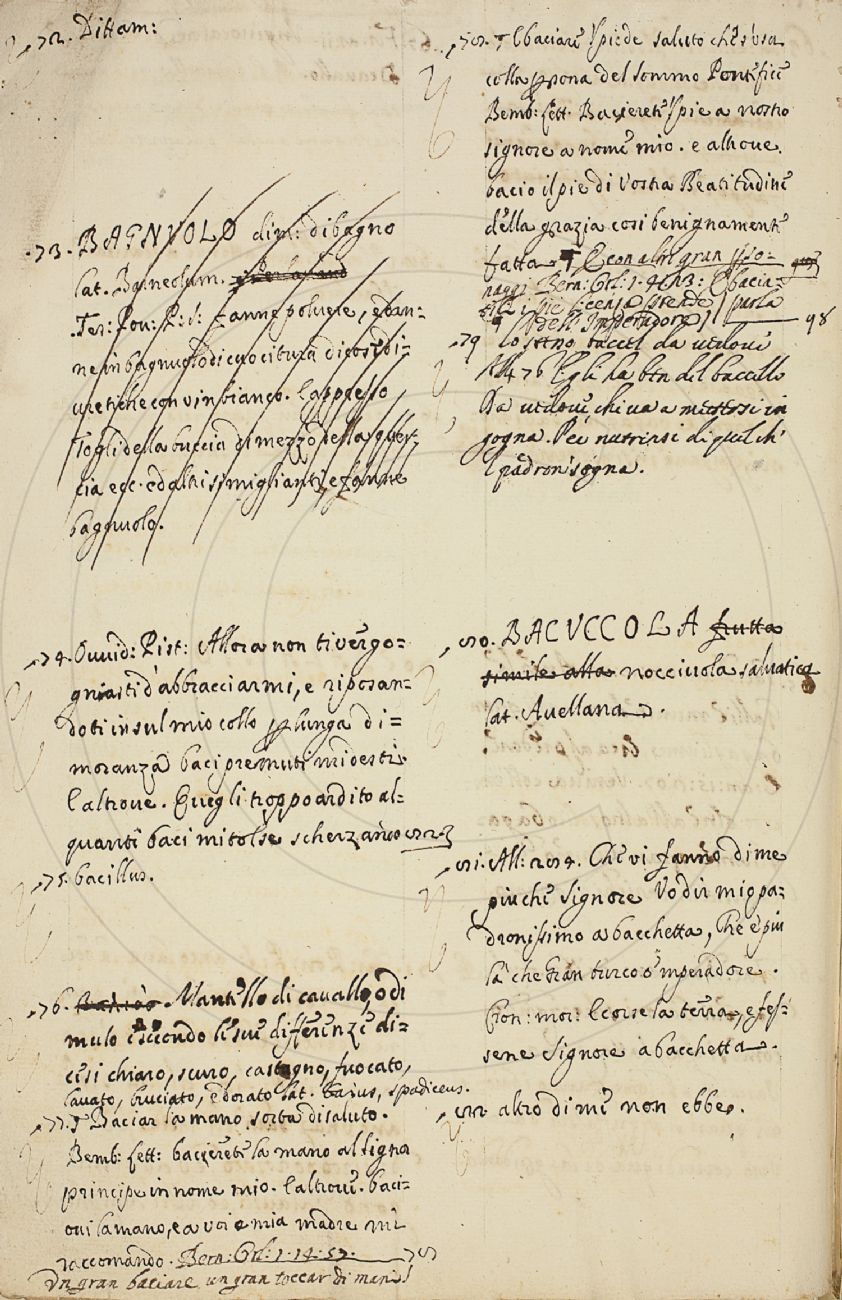 72. Dittam:
73. BAGNUOLO dim: di bagno
lat. Balneolum.
Ter: Pov: P: S: fanne polvere, e fan-
ne in bagnuolo di cuocitura di cosi di-
uretiche con vin bianco. E appresso
Togli della buccia di mezzo della quer-
cia ecc. ed altri simiglianti, e fanne
bagnuolo.
74. Ovvid: Pist: Allora non ti vergo=
gniasti d'abbracciarmi, e riposan-
doti in sul mio collo p lunga di=
moranza baci premuti mi desti
E altrove. Quegli troppo ardito al=
quanti baci mi tolse scherzando
75. bacillus.
76. Mantello di cavallo, o di
mulo e secondo le sue differenze di=
cesi chiaro, scuro, castagno, fuocato,
lavato, bruciato, e dorato lat. baius, spadiceus.
77. ¶ Baciar la mano sorta di saluto.
Bemb: lett: bacierete la mano al Signor
principe in nome mio. E altrove. baci=
ovi la mano, e a voi e mia madre mi
raccomando. Bern: Orl: 1. 14. 57.
Un gran baciare un gran toccar di mani
78. ¶ E baciare 'l piede saluto che s'usa
colla psona del sommo Pontefice
Bemb: lett. Bacierete 'l pie a nostro
signore a nome mio. e altrove.
bacio il pie di Vostra Beatitudine
della grazia cosi benignamente
fatta. ¶ E con altri gran pso=
naggi Bern: Orl: 1. E bacia=
licenza prende / parla
dell'Imperadore
79 lo seno baccel da vedovi
All 76 Egli ha ben del baccello
Da vedove, chi va a mettersi in
gogna. Per nutrirsi di quel ch'
l padron sogna.
80. BACUCCOLA frutta
simile alla nocciuola salvatica
lat. Avellana.
81. All: 284. Che vi fanno di me
piu che Signore Vo dir mio pa=
dronissimo a bacchetta, Che e piu
la che Gran turco o 'mperadore.
Cron: mor: E corse la terra, e fes-
sene Signore a bacchetta.
82. altro di me non ebbe.